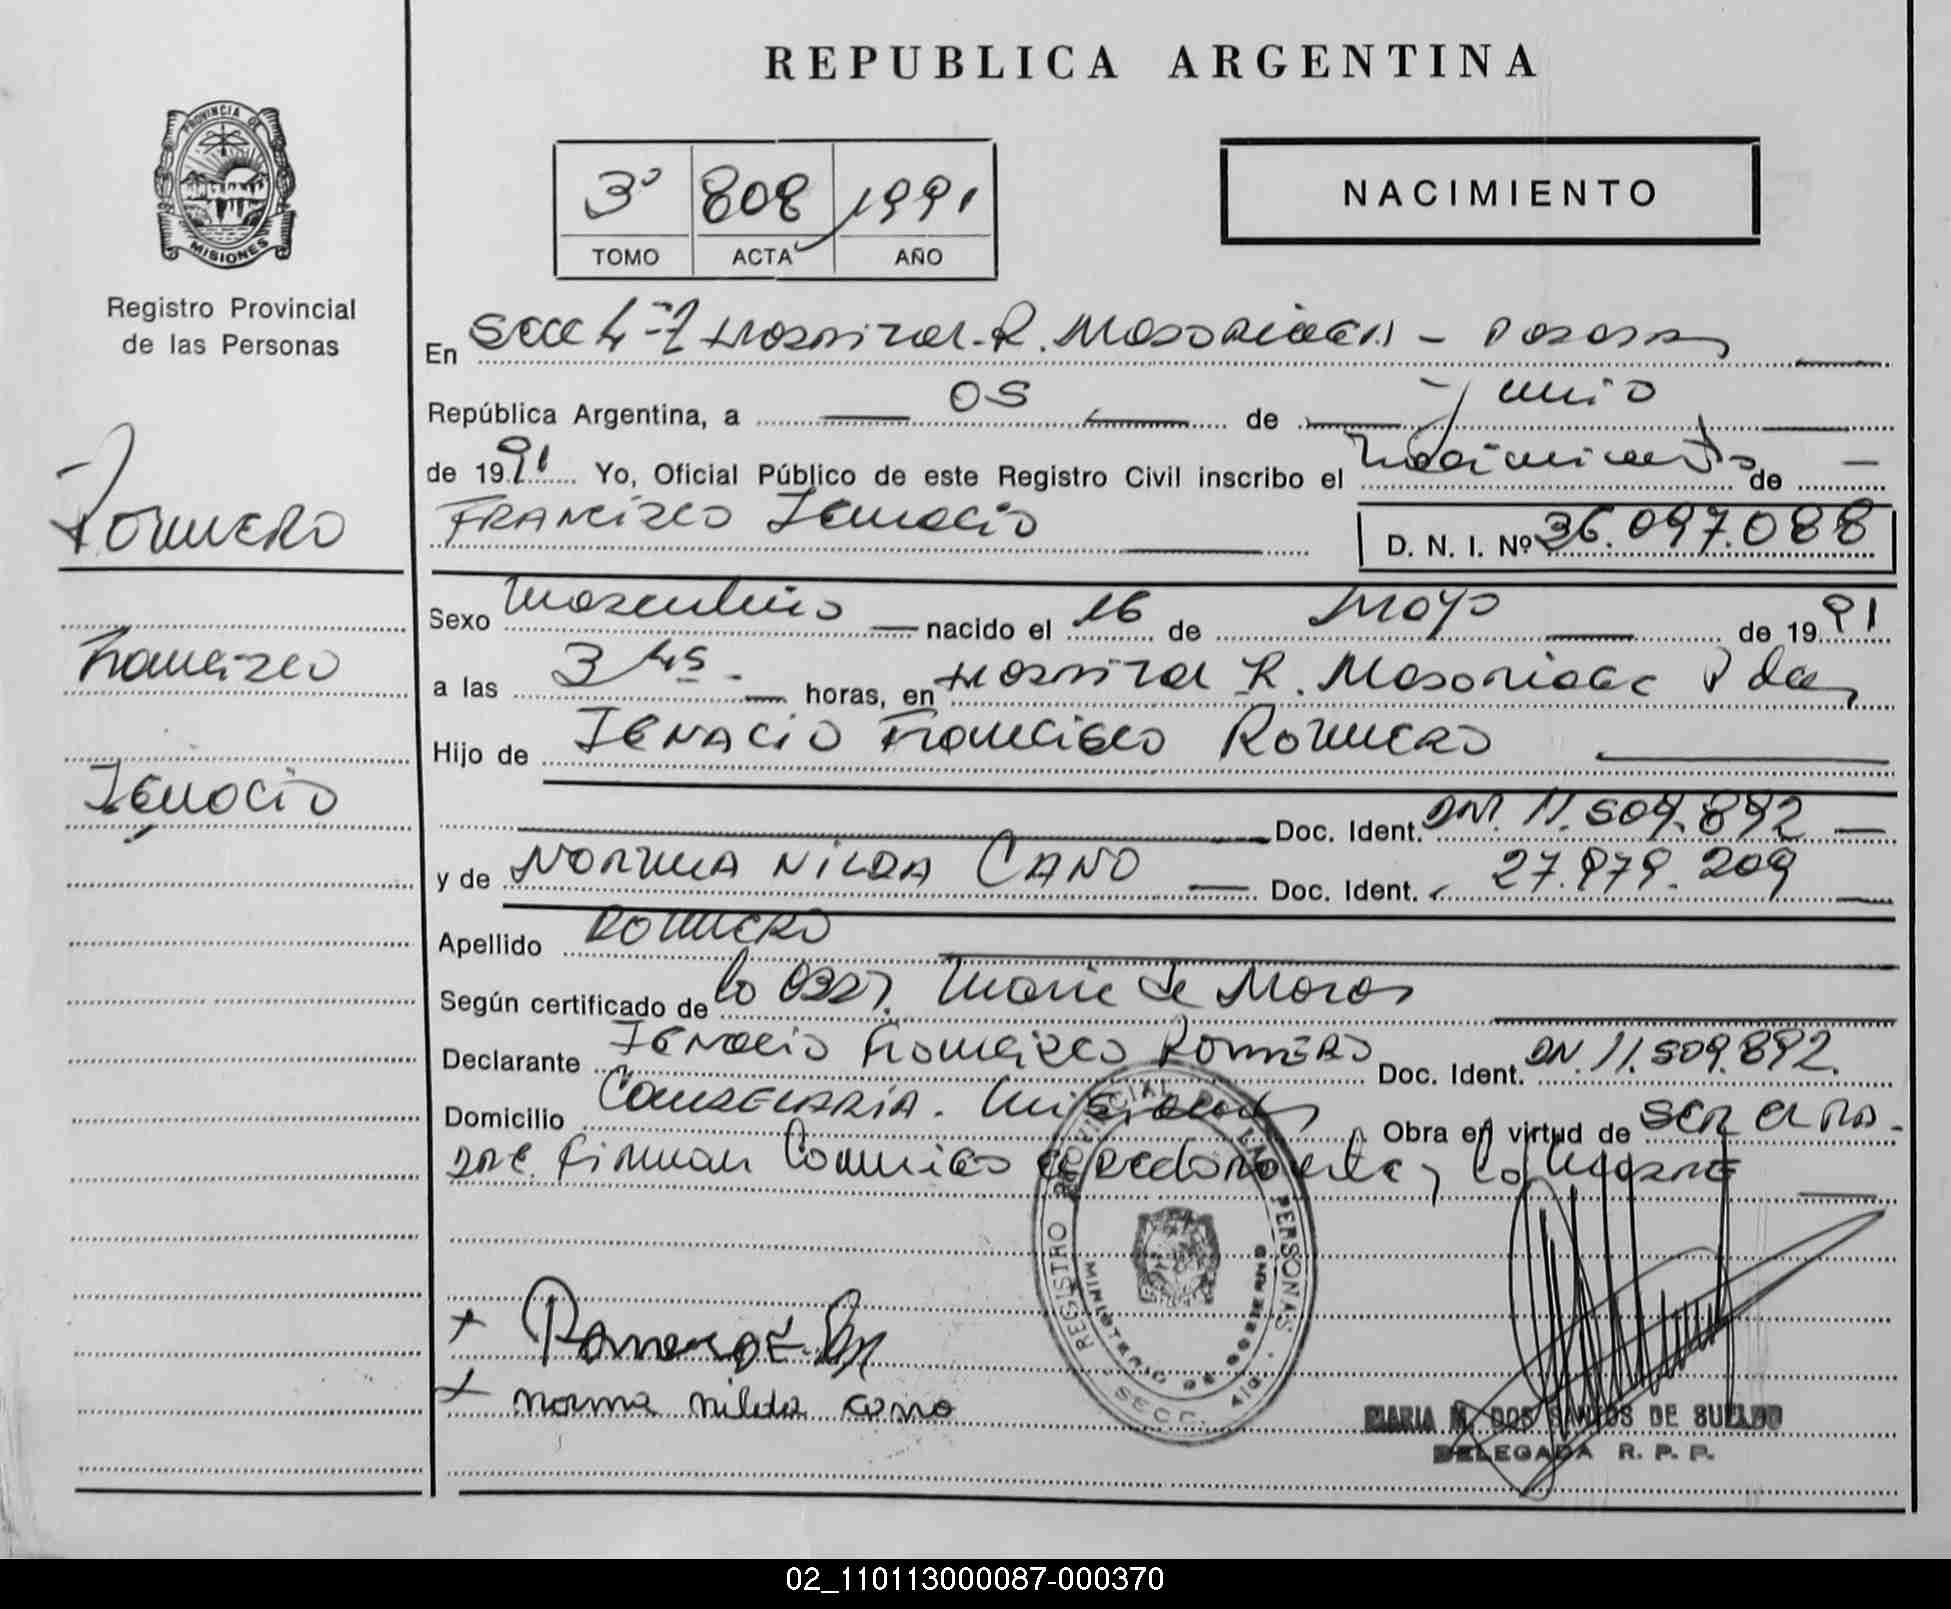 REPUBLICA ARGENTINA
PROVINCIA DE
MISIONES
Registro Provincial
de las Personas
3º 808 1991
TOMO ACTA AÑO
NACIMIENTO
En Secc 4ª Hospital R. Madariaga - Posadas
República Argentina, a 05 de junio
de 1991 Yo, Oficial Público de este Registro Civil inscribo el nacimiento de
Francisco Ignacio
D. N. I. Nº 36.097.088
Romero
Francisco
Ignacio
Sexo masculino nacido el 16 de Mayo de 1991
a las 3 hs. horas, en Hospital R. Madariaga Pdas
Hijo de Ignacio Francisco Romero
Doc. Ident. DNI. 11.509.892
y de NORMA NILDA CANO Doc. Ident. 27.979.209
Apellido Romero
Según certificado de la Obst. Marie de
Declarante Ignacio Francisco Romero Doc. Ident. DN. 11.509.892.
Domicilio Candelaria. Misiones Obra en virtud de ser el pa-
dre. Firman conmigo el declarante y la madre
REGISTRO PROVINCIAL DE LAS PERSONAS
MINISTERIO DE GOBIERNO
SECC.
+ Romero
+ norma nilda cano
MARIA M. DOS SANTOS DE SUELDO
DELEGADA R. P. P.
02_110113000087-000370